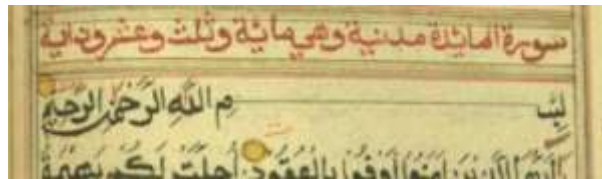 سورة المائدة مدنية وهي مائة وثلث وعشرون اية
بِسْمِ اللّٰهِ الرَّحْمٰنِ الرَّحِيمِ
يَا أَيُّهَا الَّذِينَ آمَنُوا أَوْفُوا بِالْعُقُودِ أُحِلَّتْ لَكُمْ بَهِيمَةُ